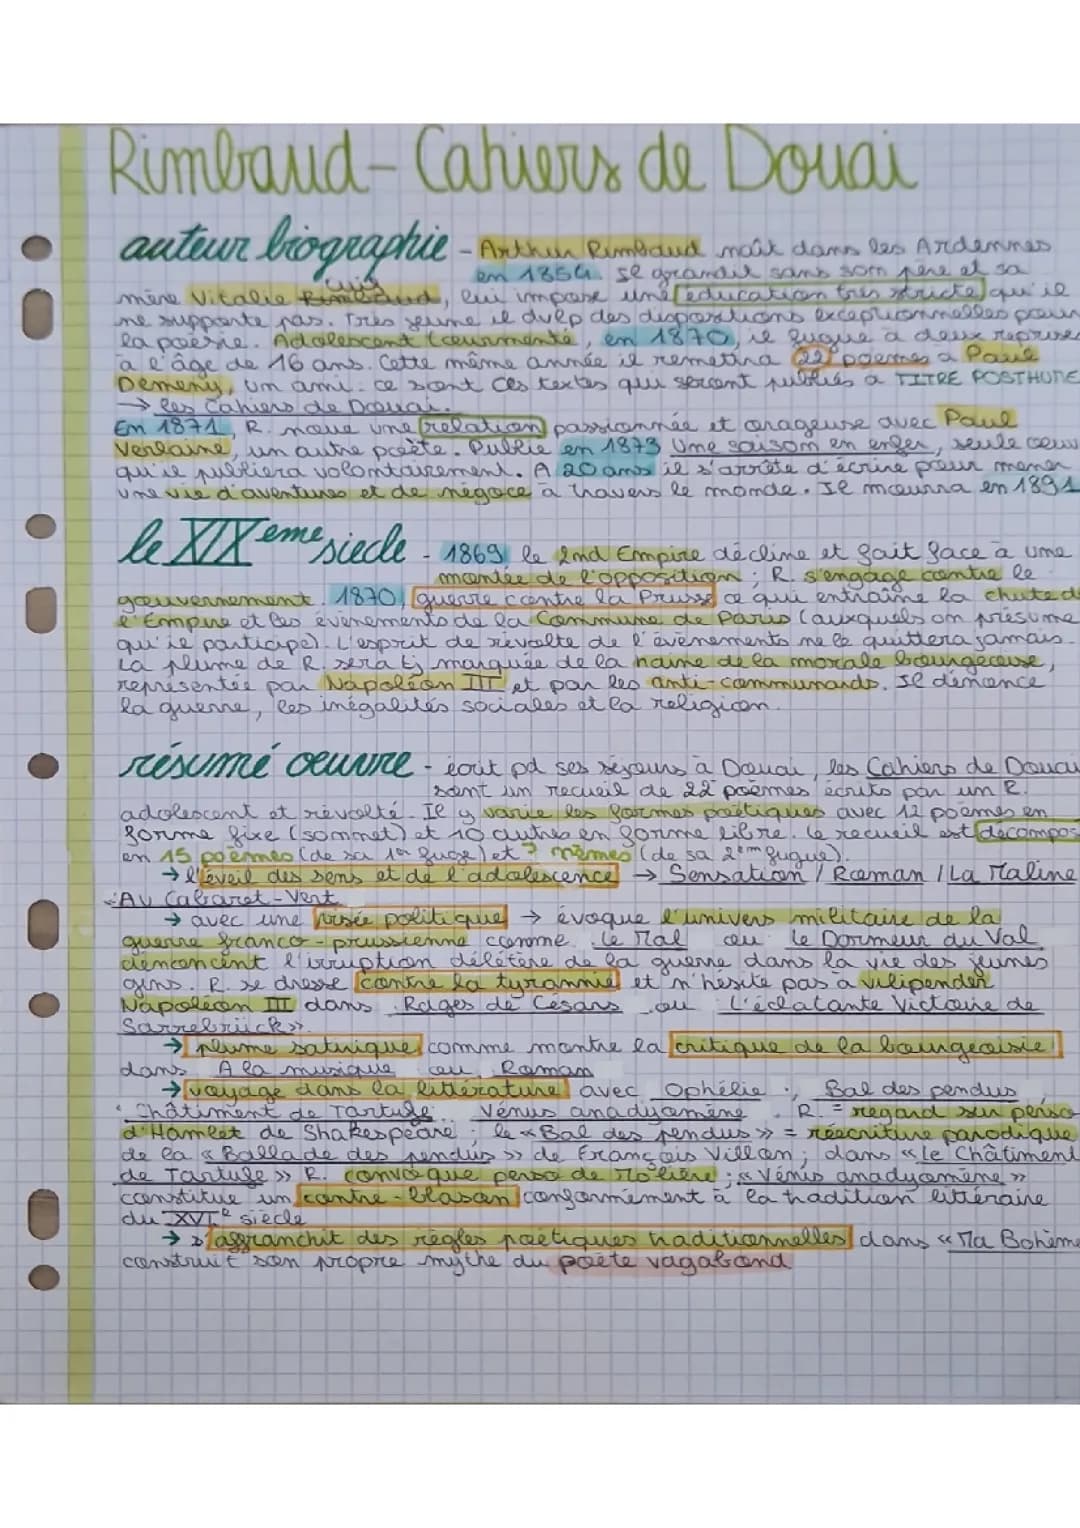 Rimbaud - Cahiers de Douai
auteur biographie - Arthur Rimbaud naît dans les Ardennes
en 1854. Il grandit sans son père et sa
cuif
mère Vitalie Rimbaud, lui impose une éducation très stricte qu'il
ne supporte pas. Très jeune il dvlp des dispositions exceptionnelles pour
la poésie. Adolescent tourmenté, en 1870, il fugue à deux reprises
à l'âge de 16 ans. Cette même année il remettra 22 poèmes à Paul
Demeny, un ami. ce sont ces textes qui seront publiés à TITRE POSTHUME
→ les Cahiers de Douai.
En 1871, R. noue une relation passionnée et orageuse avec Paul
Verlaine, un autre poète. Publie en 1873 Une saison en enfer, seule oeuv
qu'il publiera volontairement. A 20 ans il s'arrête d'écrire pour mener
une vie d'aventures et de négoce à travers le monde. Il mourra en 1891
le XIXeme siecle - 1869 le 2nd Empire décline et fait face à une
montée de l'opposition ; R. s'engage contre le
gouvernement. 1870, guerre contre la Prusse ce qui entraîne la chute d
l'Empire et les évènements de la Commune de Paris (auxquels on présume
qu'il participe). L'esprit de révolte de l'évènements ne le quittera jamais.
La plume de R. sera tj marquée de la haine de la morale bourgeoise,
représentée par Napoléon III et par les anti-communards. Il dénonce
la guerre, les inégalités sociales et la religion.
résumé oeuvre - écrit pd ses séjours à Douai, les Cahiers de Douai
sont un recueil de 22 poèmes écrits par un R.
adolescent et révolté. Il y varie les formes poétiques avec 12 poèmes en
forme fixe (sonnet) et 10 autres en forme libre. Le recueil est décompos
en 15 poèmes (de sa 1er fugue) et 7 mêmes (de sa 2em fugue).
→ l'éveil des sens et de l'adolescence → Sensation / Roman / La Maline
Au Cabaret-Vert
→ avec une visée politique → évoque l'univers militaire de la
guerre franco-prussienne comme Le Mal ou Le Dormeur du Val
dénoncent l'irruption délétère de la guerre dans la vie des jeunes
gens. R. se dresse contre la tyrannie et n'hésite pas à vilipender
Napoléon III dans Rages de Césars ou L'éclatante Victoire de
Sarrebrück».
→ plume satirique comme montre la critique de la bourgeoisie
dans A la musique ou Roman
→ voyage dans la littérature avec Ophélie ; Bal des pendus
Châtiment de Tartufe Vénus anadyomène . R. = regard sur perso
d'Hamlet de Shakespeare ; le «Bal des pendus» = réécriture parodique
de la «Ballade des pendus» de François Villon ; dans «Le Châtiment
de Tartufe» R. convoque perso de Molière ; «Vénus anadyomène»
constitue un contre-blason conformément à la tradition littéraire
du XVIe siècle
→ s'affranchit des règles poétiques traditionnelles dans «Ma Bohème
construit son propre mythe du poète vagabond